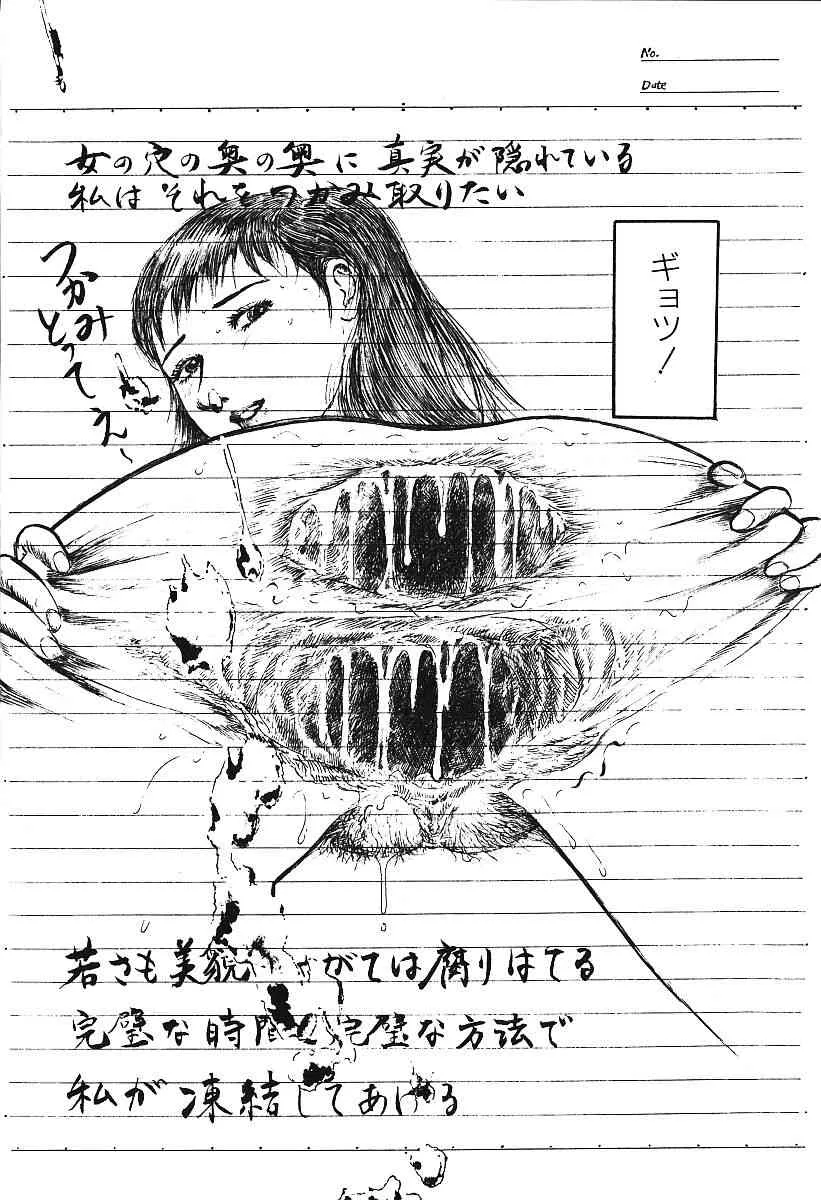 No.
Date
女の穴の奥の奥に 真実が隠れている
私は それをつかみ取りたい
ギョッ!
つかみ
とってぇ~
若さも美貌 がては腐りはてる
完璧な時間 完璧な方法で
私が 凍結してあげる